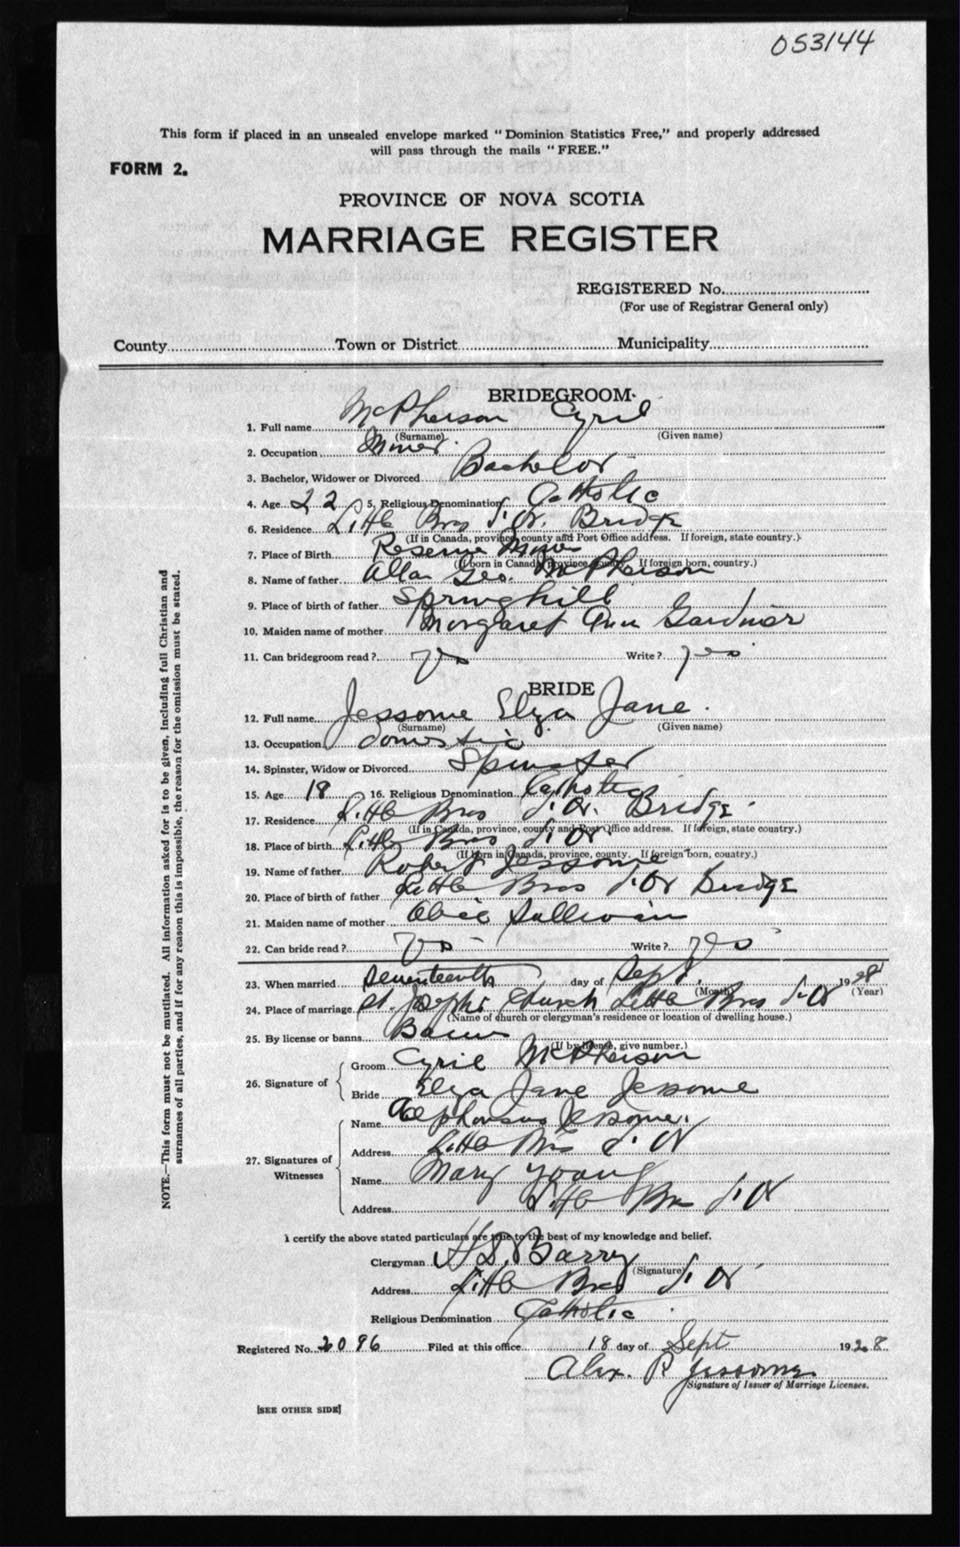 053144
This form if placed in an unsealed envelope marked "Dominion Statistics Free," and properly addressed
will pass through the mails "FREE."
FORM 2.
PROVINCE OF NOVA SCOTIA
MARRIAGE REGISTER
REGISTERED No.
(For use of Registrar General only)
County Town or District Municipality
BRIDEGROOM
1. Full name McPherson Cyril
(Surname) (Given name)
2. Occupation Miner
3. Bachelor, Widower or Divorced Bachelor
4. Age 22 5. Religious Denomination Catholic
6. Residence Little Bras d'Or Bridge
(If in Canada, province, county and Post Office address. If foreign, state country.)
7. Place of Birth Reserve Mines
(If born in Canada, province, county. If foreign born, country.)
8. Name of father Allan Geo. McPherson
9. Place of birth of father Springhill
10. Maiden name of mother Margaret Ann Gardiner
11. Can bridegroom read? Yes Write? yes
BRIDE
12. Full name Jessome Elza Jane
(Surname) (Given name)
13. Occupation domestic
14. Spinster, Widow or Divorced Spinster
15. Age 18 16. Religious Denomination Catholic
17. Residence Little Bras d'Or Bridge
(If in Canada, province, county and Post Office address. If foreign, state country.)
18. Place of birth Little Bras d'Or
(If born in Canada, province, county. If foreign born, country.)
19. Name of father Robert Jessome
20. Place of birth of father Little Bras d'Or Bridge
21. Maiden name of mother Alice Sullivan
22. Can bride read? Yes Write? yes
23. When married Seventeenth day of Sept. 1928
(Month) (Year)
24. Place of marriage St. Joseph's Church Little Bras d'Or
(Name of church or clergyman's residence or location of dwelling house.)
25. By license or banns Banns
(If by license, give number.)
26. Signature of
Groom Cyril McPherson
Bride Elza Jane Jessome
27. Signatures of Witnesses
Name Alphonsus Jessome
Address Little Bras d'Or
Name Mary Young
Address Little Bras d'Or
I certify the above stated particulars are true to the best of my knowledge and belief.
Clergyman H.D. Barry
(Signature)
Address Little Bras d'Or
Religious Denomination Catholic
Registered No. 2096 Filed at this office 18 day of Sept 1928
Alex. P. Jessome
Signature of Issuer of Marriage Licenses.
[SEE OTHER SIDE]
NOTE.—This form must not be mutilated. All information asked for is to be given, including full Christian and
surnames of all parties, and if for any reason this is impossible, the reason for the omission must be stated.